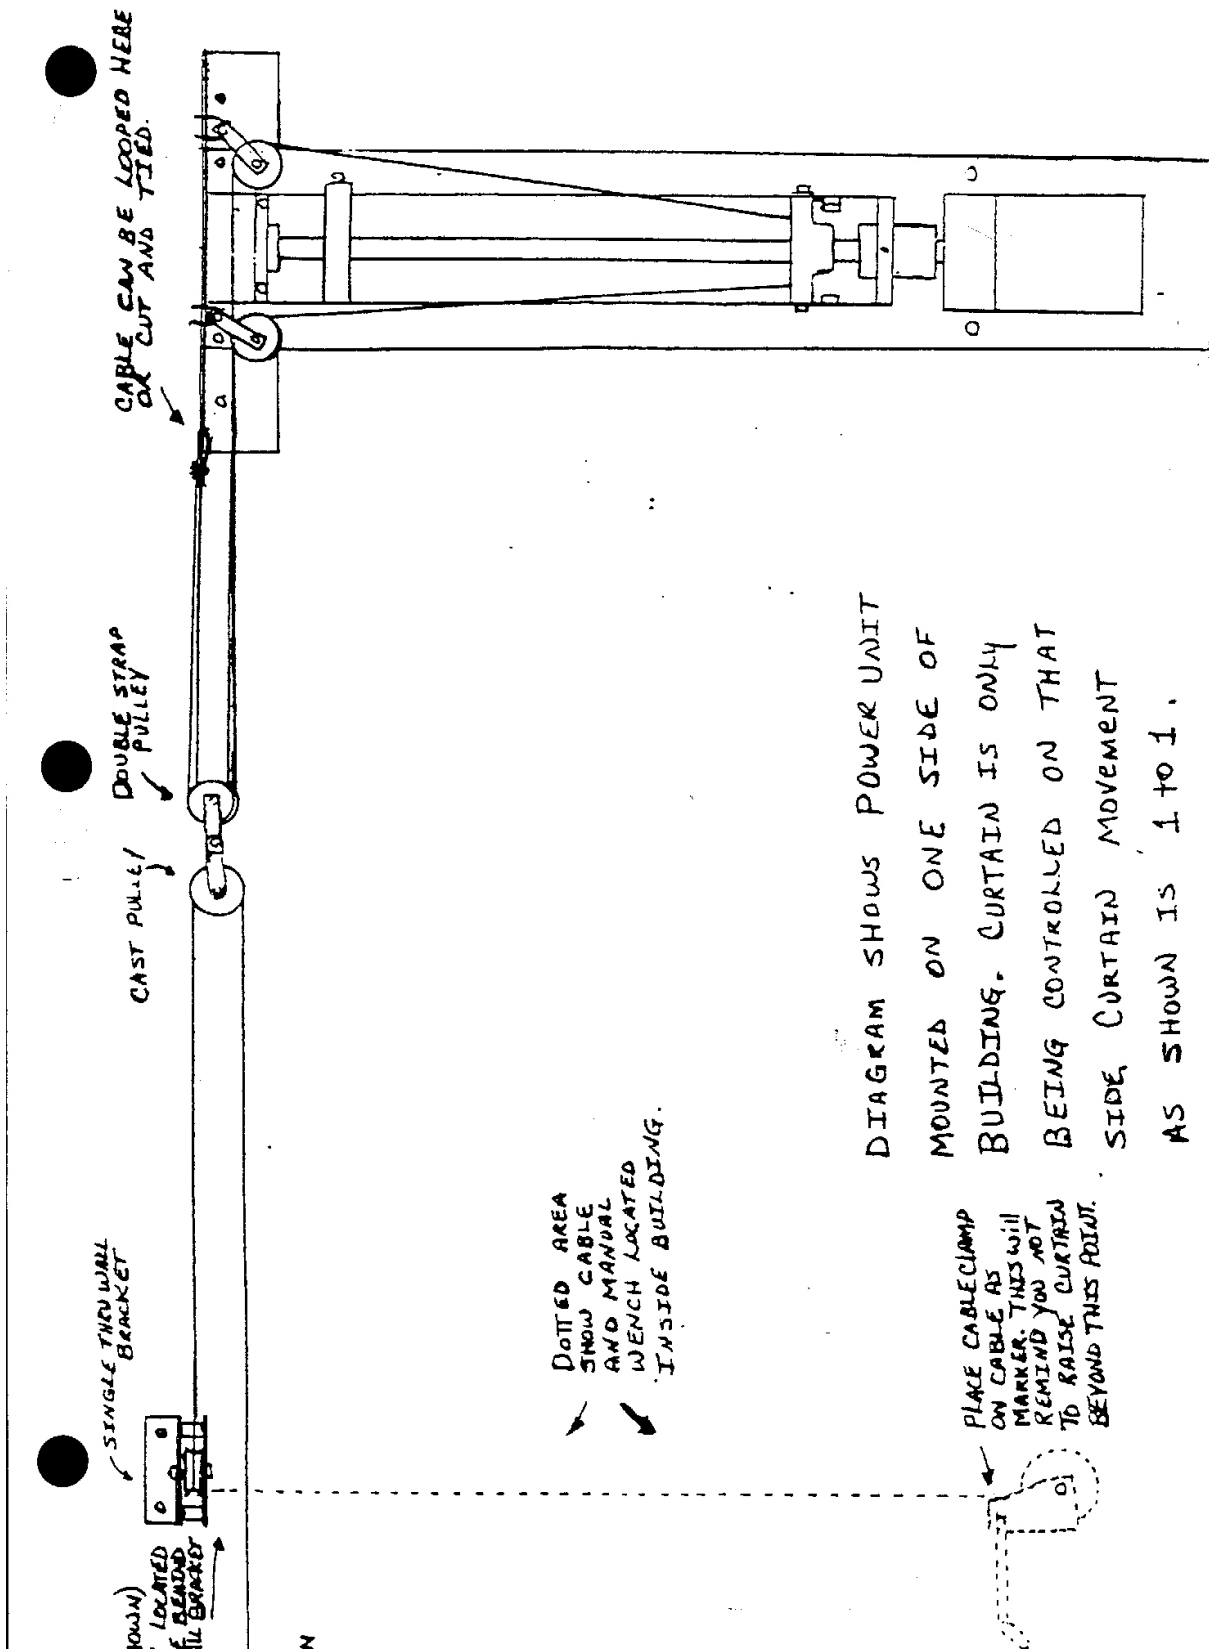 CABLE CAN BE LOOPED HERE
OR CUT AND TIED.
DOUBLE STRAP
PULLEY
CAST PULLEY
SINGLE THRU WALL
BRACKET
OWN)
LOCATED
BEHIND
BRACKET
N
DOTTED AREA
SHOW CABLE
AND MANUAL
WENCH LOCATED
INSIDE BUILDING.
PLACE CABLE CLAMP
ON CABLE AS
MARKER. THIS WILL
REMIND YOU NOT
TO RAISE CURTAIN
BEYOND THIS POINT.
DIAGRAM SHOWS POWER UNIT
MOUNTED ON ONE SIDE OF
BUILDING. CURTAIN IS ONLY
BEING CONTROLLED ON THAT
SIDE, CURTAIN MOVEMENT
AS SHOWN IS 1 TO 1.